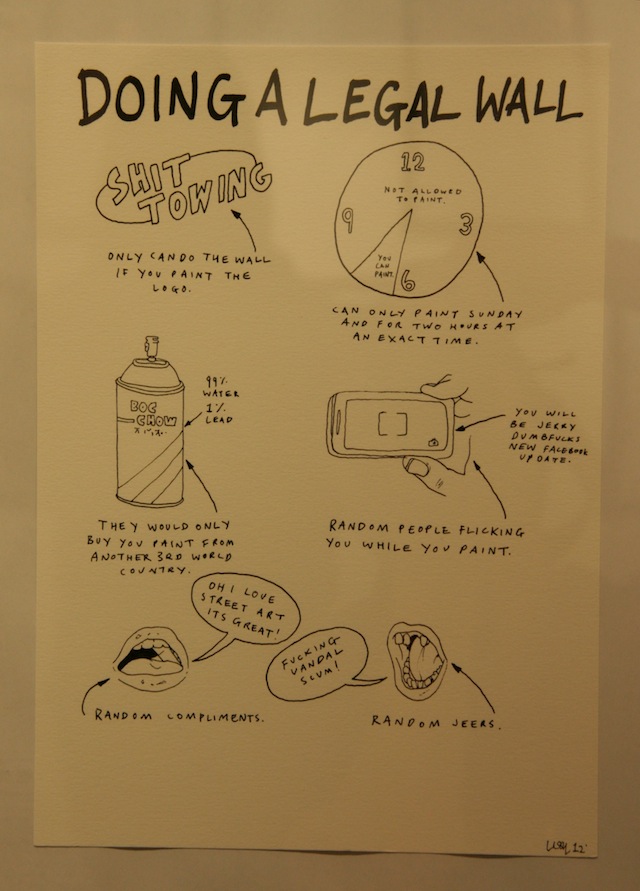 DOING A LEGAL WALL
SHIT
TOWING
ONLY CAN DO THE WALL
IF YOU PAINT THE
LOGO.
12
NOT ALLOWED
TO PAINT.
9
3
YOU
CAN
PAINT.
6
CAN ONLY PAINT SUNDAY
AND FOR TWO HOURS AT
AN EXACT TIME.
BOC
CHOW
99%
WATER
1%
LEAD
THEY WOULD ONLY
BUY YOU PAINT FROM
ANOTHER 3RD WORLD
COUNTRY.
YOU WILL
BE JERRY
DUMBFUCKS
NEW FACEBOOK
UPDATE.
RANDOM PEOPLE FLICKING
YOU WHILE YOU PAINT.
OH I LOVE
STREET ART
ITS GREAT!
RANDOM COMPLIMENTS.
FUCKING
VANDAL
SCUM!
RANDOM JEERS.
12'